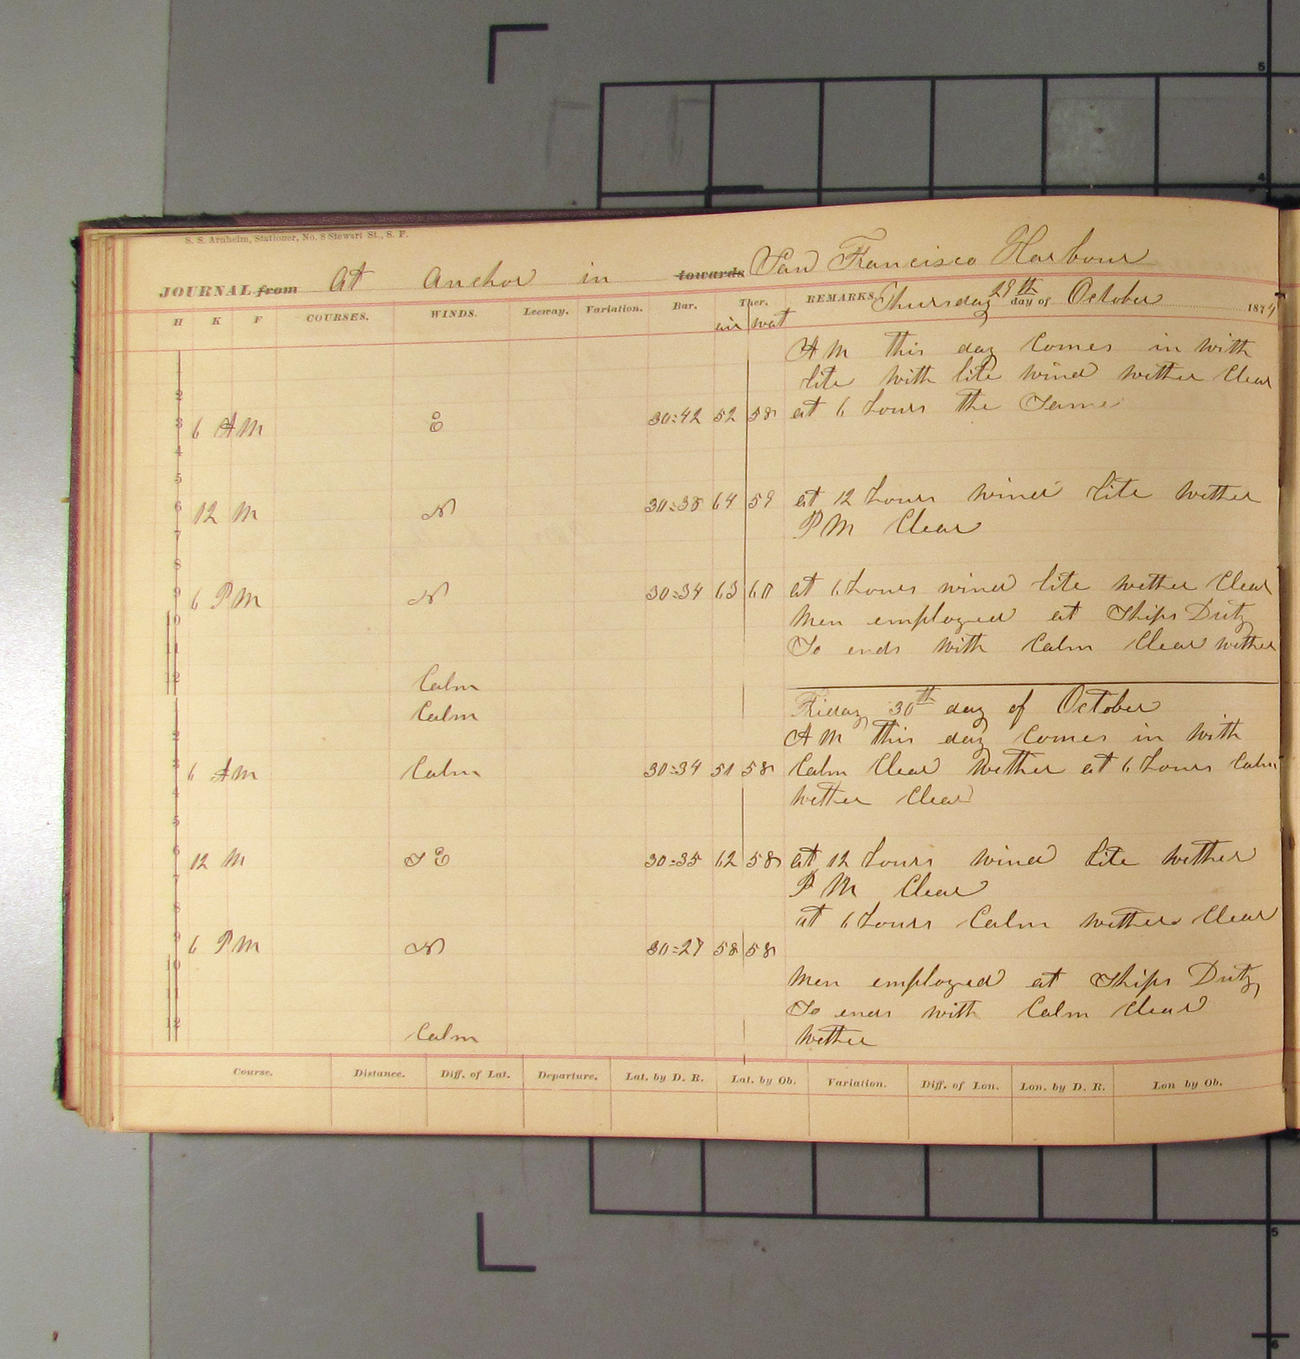 S. S. Arnheim, Stationer, No. 8 Stewart St., S. F.
JOURNAL from At Anchor in towards San Francisco Harbour
H K F COURSES. WINDS. Leeway. Variation. Bar. Ther. REMARKS, Thursday 29th day of October 1874
air wat
AM this day Comes in with
lite with lite wind wether Clear
2
3 6 AM E 30=42 52 58 at 6 hours the Same
4
5
6 12 M N 30=38 64 59 at 12 hours wind lite wether
7 PM Clear
8
9 6 PM N 30=34 63 60 at 6 hours wind lite wether Clear
10 Men employed at Ships Duty
11 So ends with Calm Clear wether
12 Calm
Calm Friday 30th day of October
2 AM this day Comes in with
3 6 AM Calm 30=34 51 58 Calm Clear Wether at 6 hours Calm
4 wether Clear
5
6 12 M S E 30=35 62 58 at 12 hours wind lite wether
7 PM Clear
8 at 6 hours Calm wether Clear
9 6 PM N 30=27 58 58
10 Men employed at Ships Duty
11 So ends with Calm Clear
12 Calm wether
Course. Distance. Diff. of Lat. Departure. Lat. by D. R. Lat. by Ob. Variation. Diff. of Lon. Lon. by D. R. Lon by Ob.
5
4
5
6